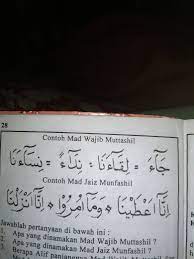 28
Contoh Mad Wajib Muttashil
جَآءَ ÷ لِقَآءَنَا ÷ نِدَآءً ÷ نِسَآءَنَا
Contoh Mad Jaiz Munfashil
اِنَّآ اَعْطَيْنَا ÷ وَمَآ اُمِرُوْا ÷ اِنَّآ اَنْزَلْنَا
Jawablah pertanyaan di bawah ini :
1. Apa yang dinamakan Mad Wajib Muttashil ?
2. Apa yang dinamakan Mad Jaiz Munfashil ?
Berapa Alif panjangnya Mad